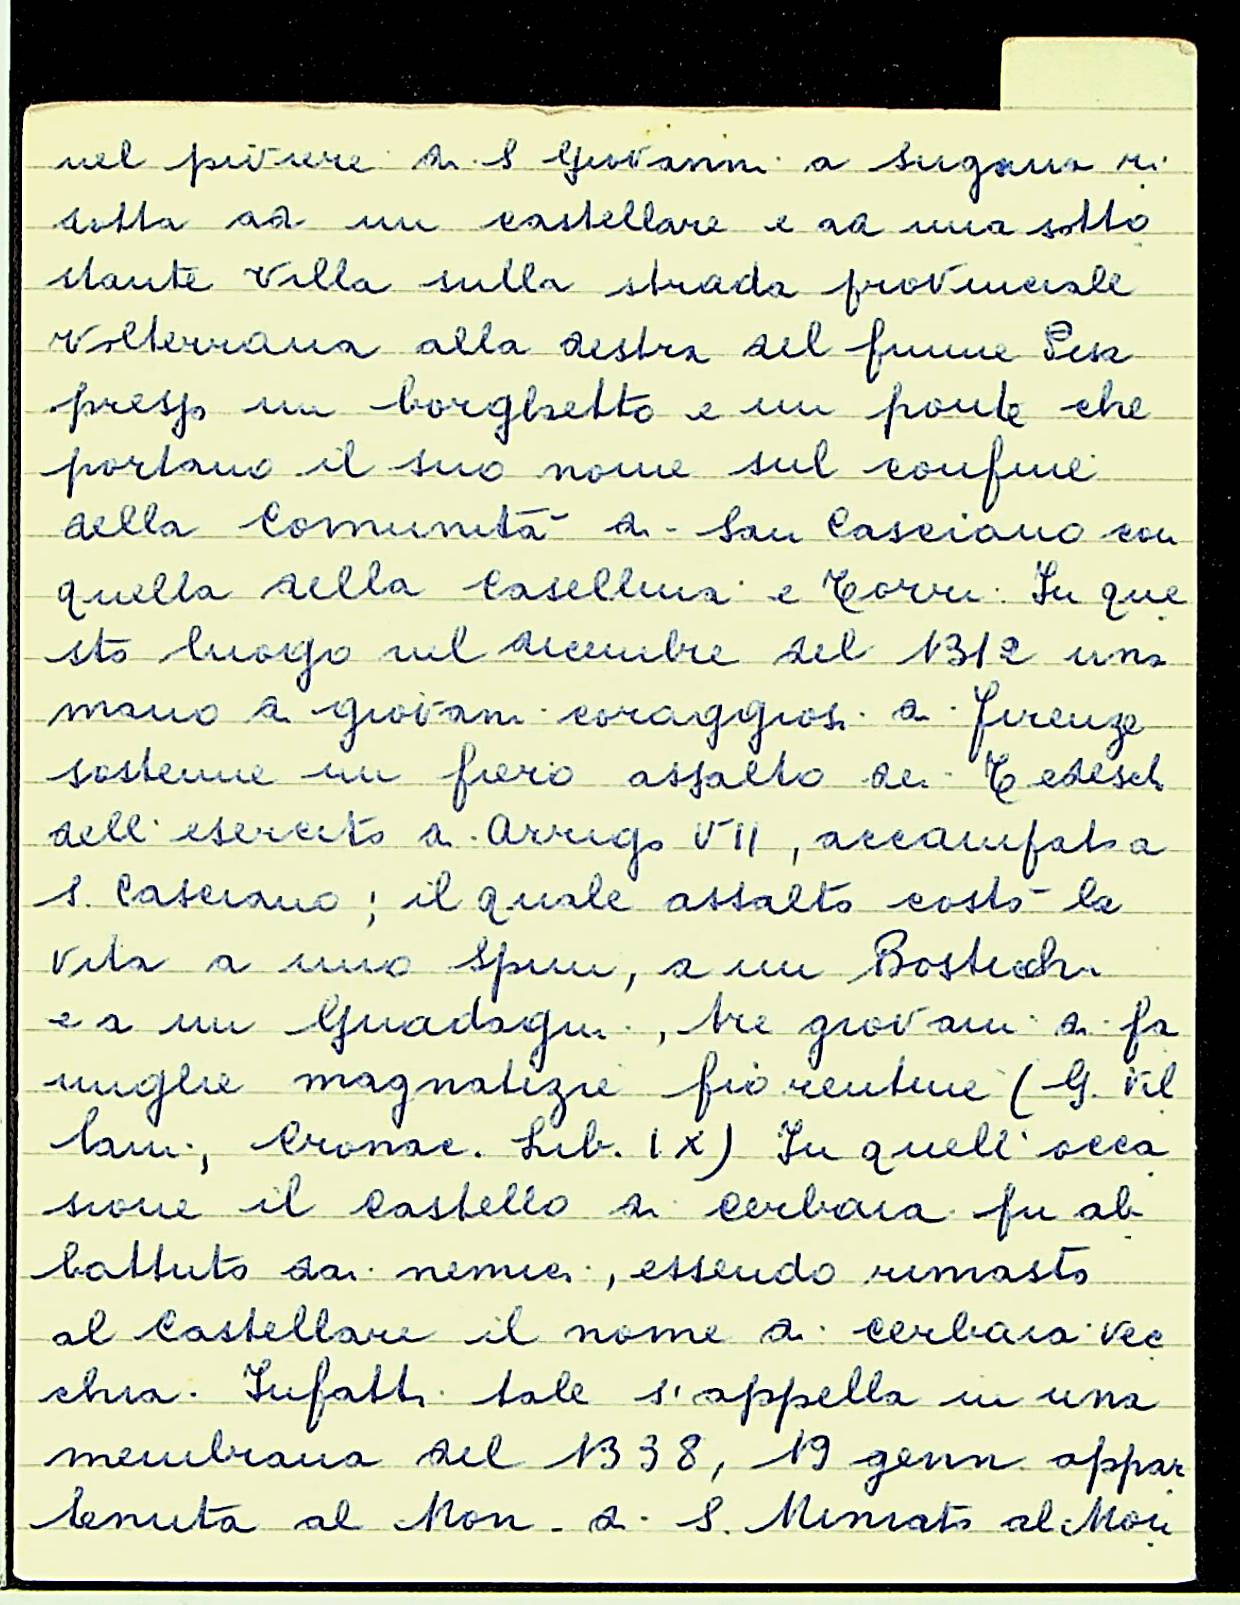 nel piviere di S Giovanni a Sugana ri
dotta ad un castellare e ad una sotto
stante villa sulla strada provinciale
volterrana alla destra del fiume Pesa
presso un borghetto e un ponte che
portano il suo nome sul confine
della Comunità di San Casciano con
quella della Casellina e Torri. In que
sto luogo nel dicembre del 1312 una
mano di giovani coraggiosi di Firenze
sostenne un fiero assalto dei Tedeschi
dell'esercito di Arrigo VII, accampato a
S. Casciano; il quale assalto costò la
vita a uno Spini, a un Bostichi
e a un Guadagni, tre giovani di fa
miglie magnatizie fiorentine (G. Vil
lani, Cronac. Lib. IX) In quell'occa
sione il Castello di Cerbaia fu ab
battuto dai nemici, essendo rimasto
al Castellare il nome di Cerbaia vec
chia. Infatti tale s'appella in una
membrana del 1338, 19 genn. appar
tenuta al Mon. di S. Miniato al Mon